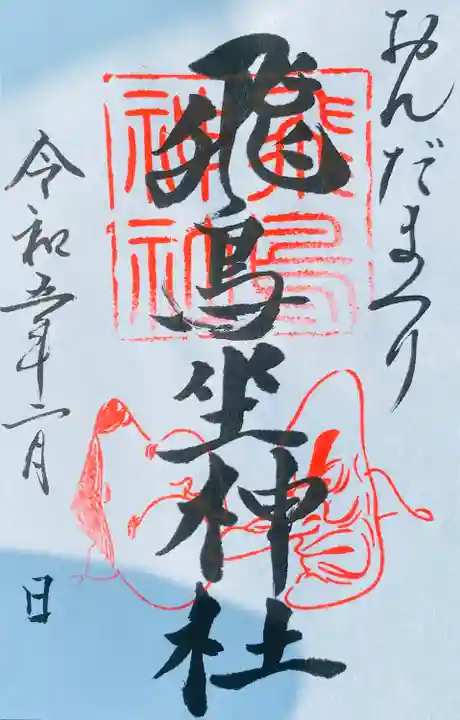 おんだまつり
飛鳥坐神社
令和五年二月 日
飛鳥
神社